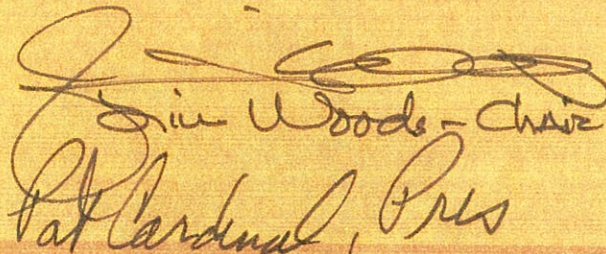 Woods - Chair
Pat Cardinal, Pres